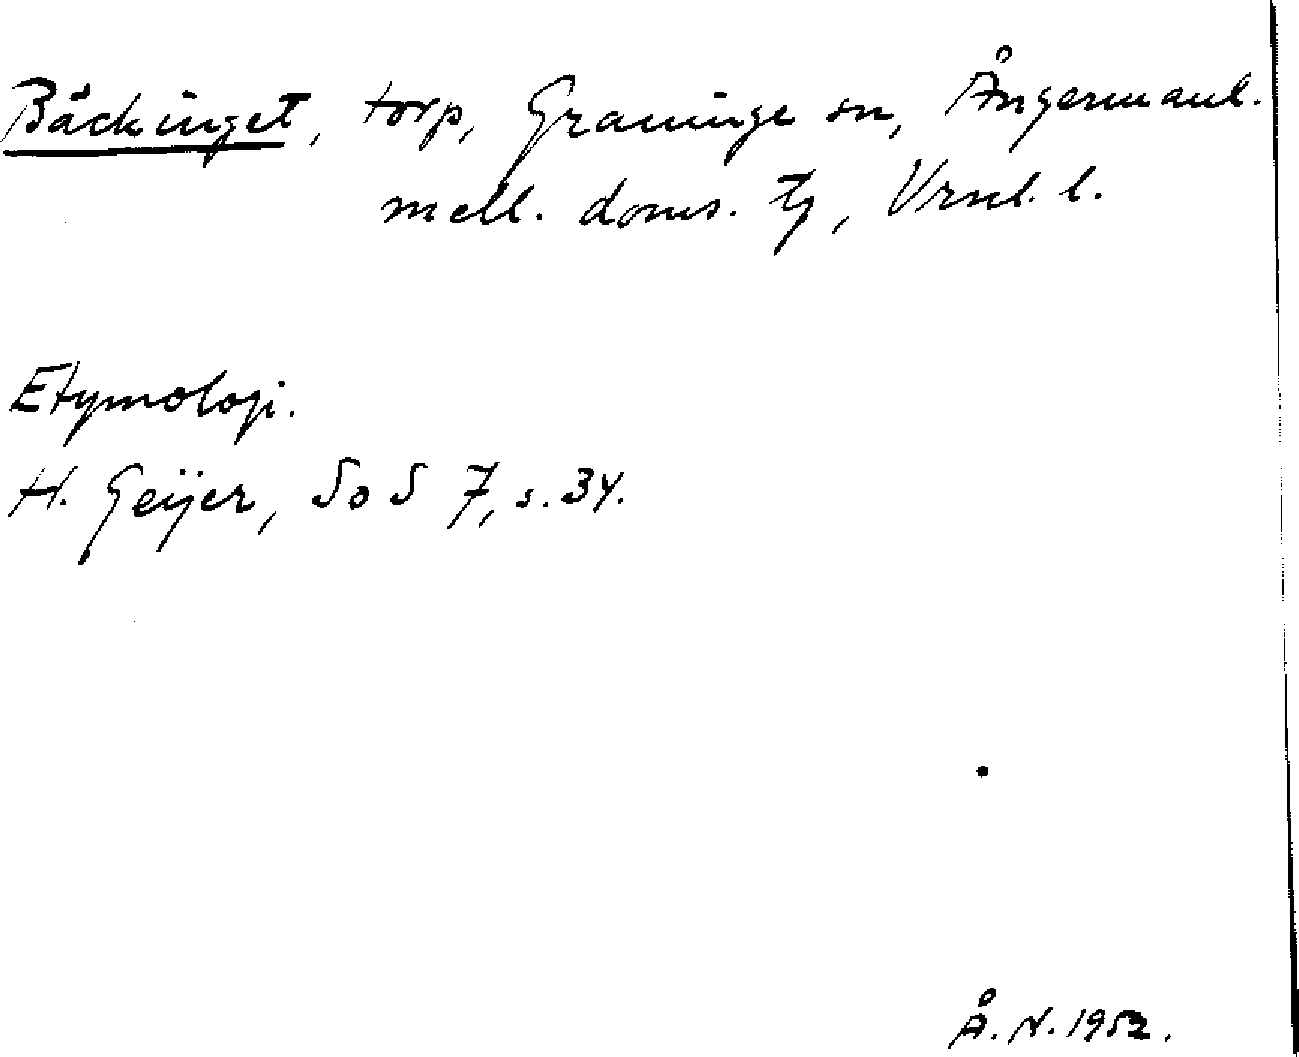 Bäckinget, torp, Graninge sn, Ångermanl.
mell. doms. tg, Vrnl. l.
Etymologi.
H. Geijer, SoS 7, s. 34.
Å. N. 1952.